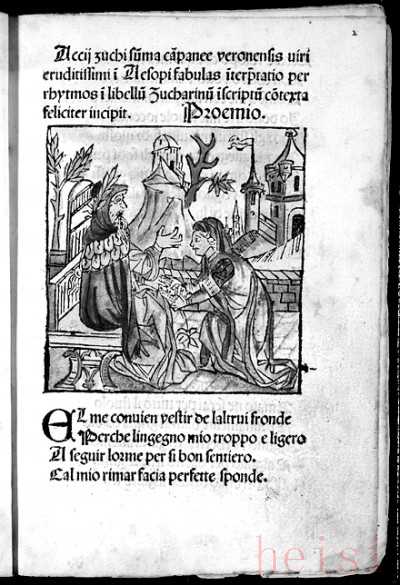 2
Accij zuchi sũma cãpanee veronensis viri
eruditissimi ĩ Aesopi fabulas ĩterp̃tatio per
rhytmos ĩ libellũ Zucharinũ ĩscriptũ cõtexta
feliciter incipit. Proemio.
EL me convien vestir de laltrui fronde
Perche lingegno mio troppo e ligero
A seguir lorme per si bon sentiero.
Cal mio rimar facia perfette sponde.
heisl